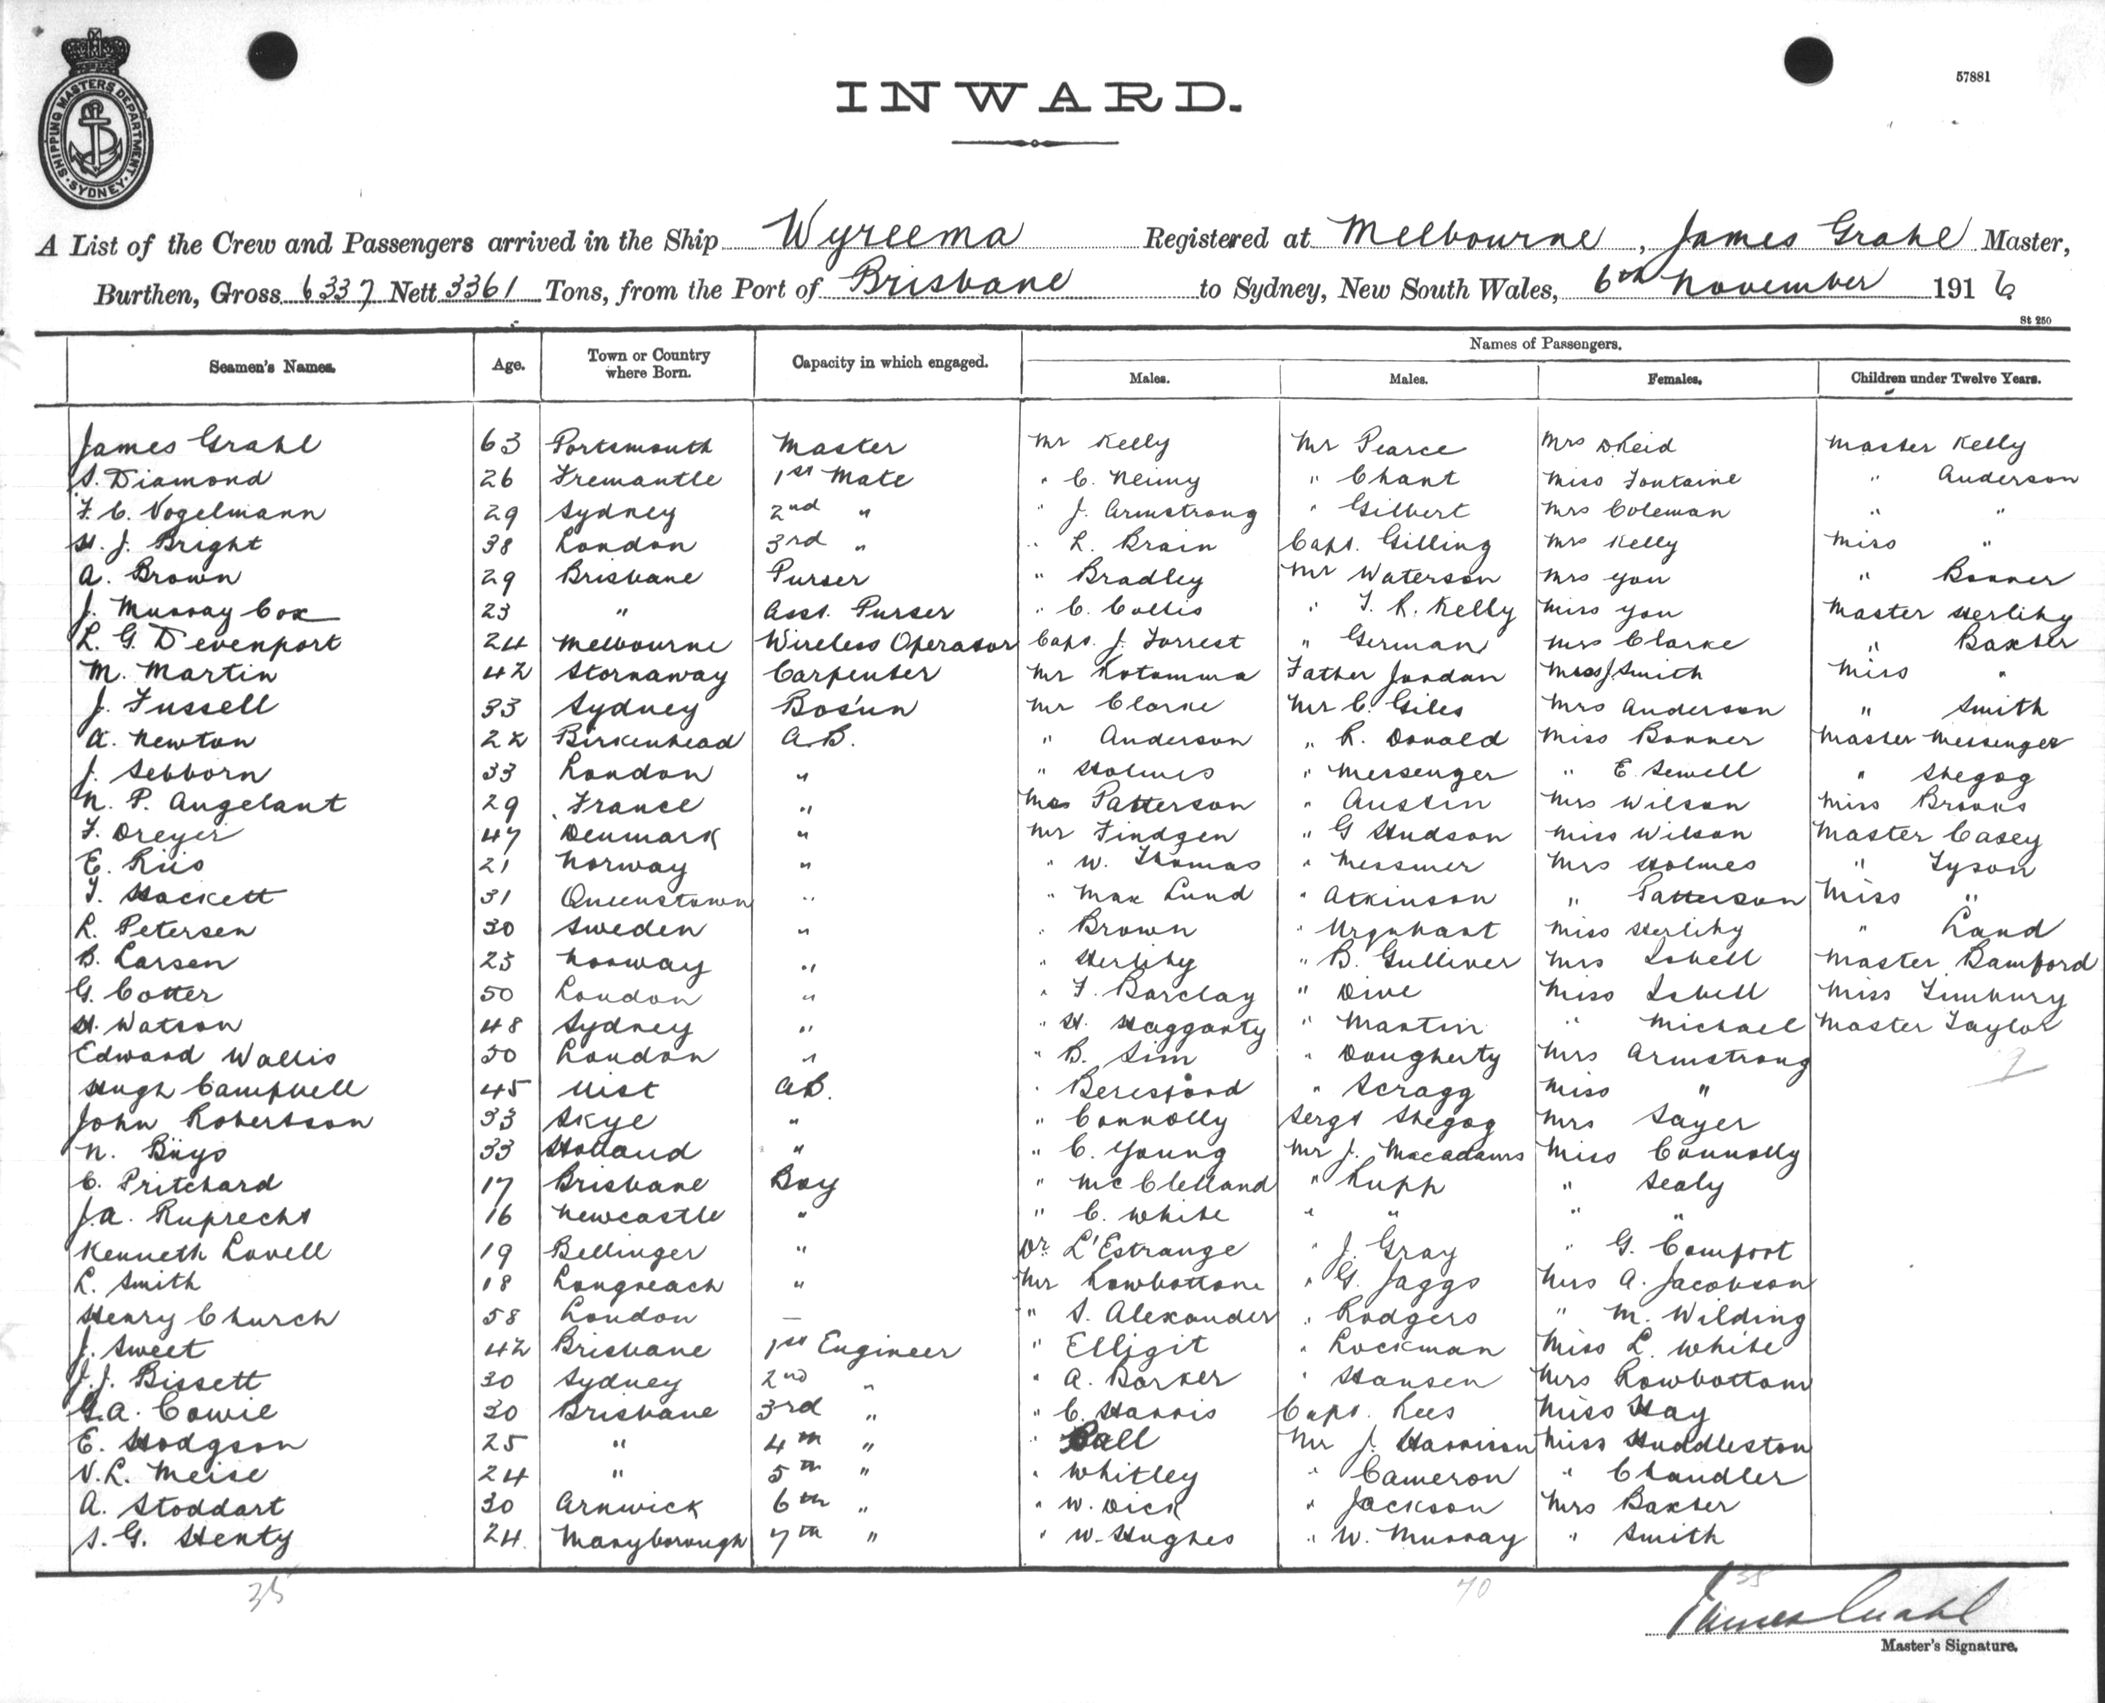 SHIPPING MASTERS DEPARTMENT. SYDNEY
57881
INWARD.
A List of the Crew and Passengers arrived in the Ship Wyreema Registered at Melbourne, James Grahl Master,
Burthen, Gross 6337 Nett 3361 Tons, from the Port of Brisbane to Sydney, New South Wales, 6th November 1916
St 250
Seamen's Names. Age. Town or Country where Born. Capacity in which engaged. Names of Passengers.
Males. Males. Females. Children under Twelve Years.
James Grahl 63 Portsmouth Master Mr Kelly Mr Pearce Mrs D Reid Master Kelly
S. Diamond 26 Fremantle 1st Mate " C. Neimy " Chant Miss Fontaine " Anderson
F. C. Vogelmann 29 Sydney 2nd " " J. Armstrong " Gilbert Mrs Coleman " "
H. J. Bright 38 London 3rd " " L. Brain Capt. Gilling Mrs Kelly Miss "
A. Brown 29 Brisbane Purser " Bradley Mr Waterson Mrs You " Bonner
J. Murray Cox 23 " Asst. Purser " C. Collis " T. R. Kelly Miss You Master Herlihy
L. G. Devenport 24 Melbourne Wireless Operator Capt. J. Forrest " German Mrs Clarke " Baxter
M. Martin 42 Stornaway Carpenter Mr Father Jordan J. Smith Miss "
J. Fussell 33 Sydney Bos'un Mr Clarke Mr C. Giles Mrs Anderson " Smith
A. Newton 22 Birkenhead A.B. " Anderson " R. Donald Miss Bonner Master Messenger
J. Sebborn 33 London " " Holmes " Messenger " E. Sewell " Shegog
N. P. Angelant 29 France " Patterson " Austin Mrs Wilson Miss Brooks
F. Dreyer 47 Denmark " Mr Findgen " G Hudson Miss Wilson Master Casey
E. Riis 21 Norway " " W. Thomas " Messmer Mrs Holmes " Tyson
T. Hackett 31 Queenstown " " Max Lund " Atkinson " Patterson Miss "
L. Petersen 30 Sweden " " Brown " Urquhart Miss Herlihy " Land
B. Larsen 23 Norway " " Herlihy " B. Gulliver Mrs Isbell Master Bamford
G. Cotter 50 London " " F. Barclay " Dive Miss Isbell Miss Timbury
H. Watson 48 Sydney " " H. Haggarty " Martin " Michael Master Taylor
Edward Wallis 50 London " " B. Sim " Dougherty Mrs Armstrong 
Hugh Campbell 45 Uist A.B. " Beresford " Scragg Miss "
John Robertson 33 Skye " " Connolly Sergt Shegog Mrs Sayer
N. Büys 33 Holland " " C. Young Mr J. Macadams Miss Connolly
C. Pritchard 17 Brisbane Boy " McClelland " Rupp " Sealy
J.A. Ruprecht 16 Newcastle " " C. White " " " "
Kenneth Lovell 19 Bellinger " Dr. L'Estrange " J. Gray " G. Comfort
L. Smith 18 Longreach " Mr Rowbottome " G. Jaggs Mrs A. Jacobson
Henry Church 58 London — " S. Alexander " Rodgers " M. Wilding
J. Sweet 42 Brisbane 1st Engineer " Elligit " Lockman Miss L. White
J.J. Bissett 30 Sydney 2nd " " A. Barker " Hansen Mrs Rowbottom
G.A. Cowie 30 Brisbane 3rd " " C. Harris Capt. Rees Miss Hay
E. Hodgson 25 " 4th " " Ball Mr J. Harrison Miss Huddleston
V.L. Meise 24 " 5th " " Whitley " Cameron " Chandler
A. Stoddart 30 Arnwick 6th " " W. Dick " Jackson Mrs Baxter
S. G. Henty 24 Maryborough 7th " " W. Hughes " W. Murray " Smith
35 70 35
James Grahl
Master's Signature.